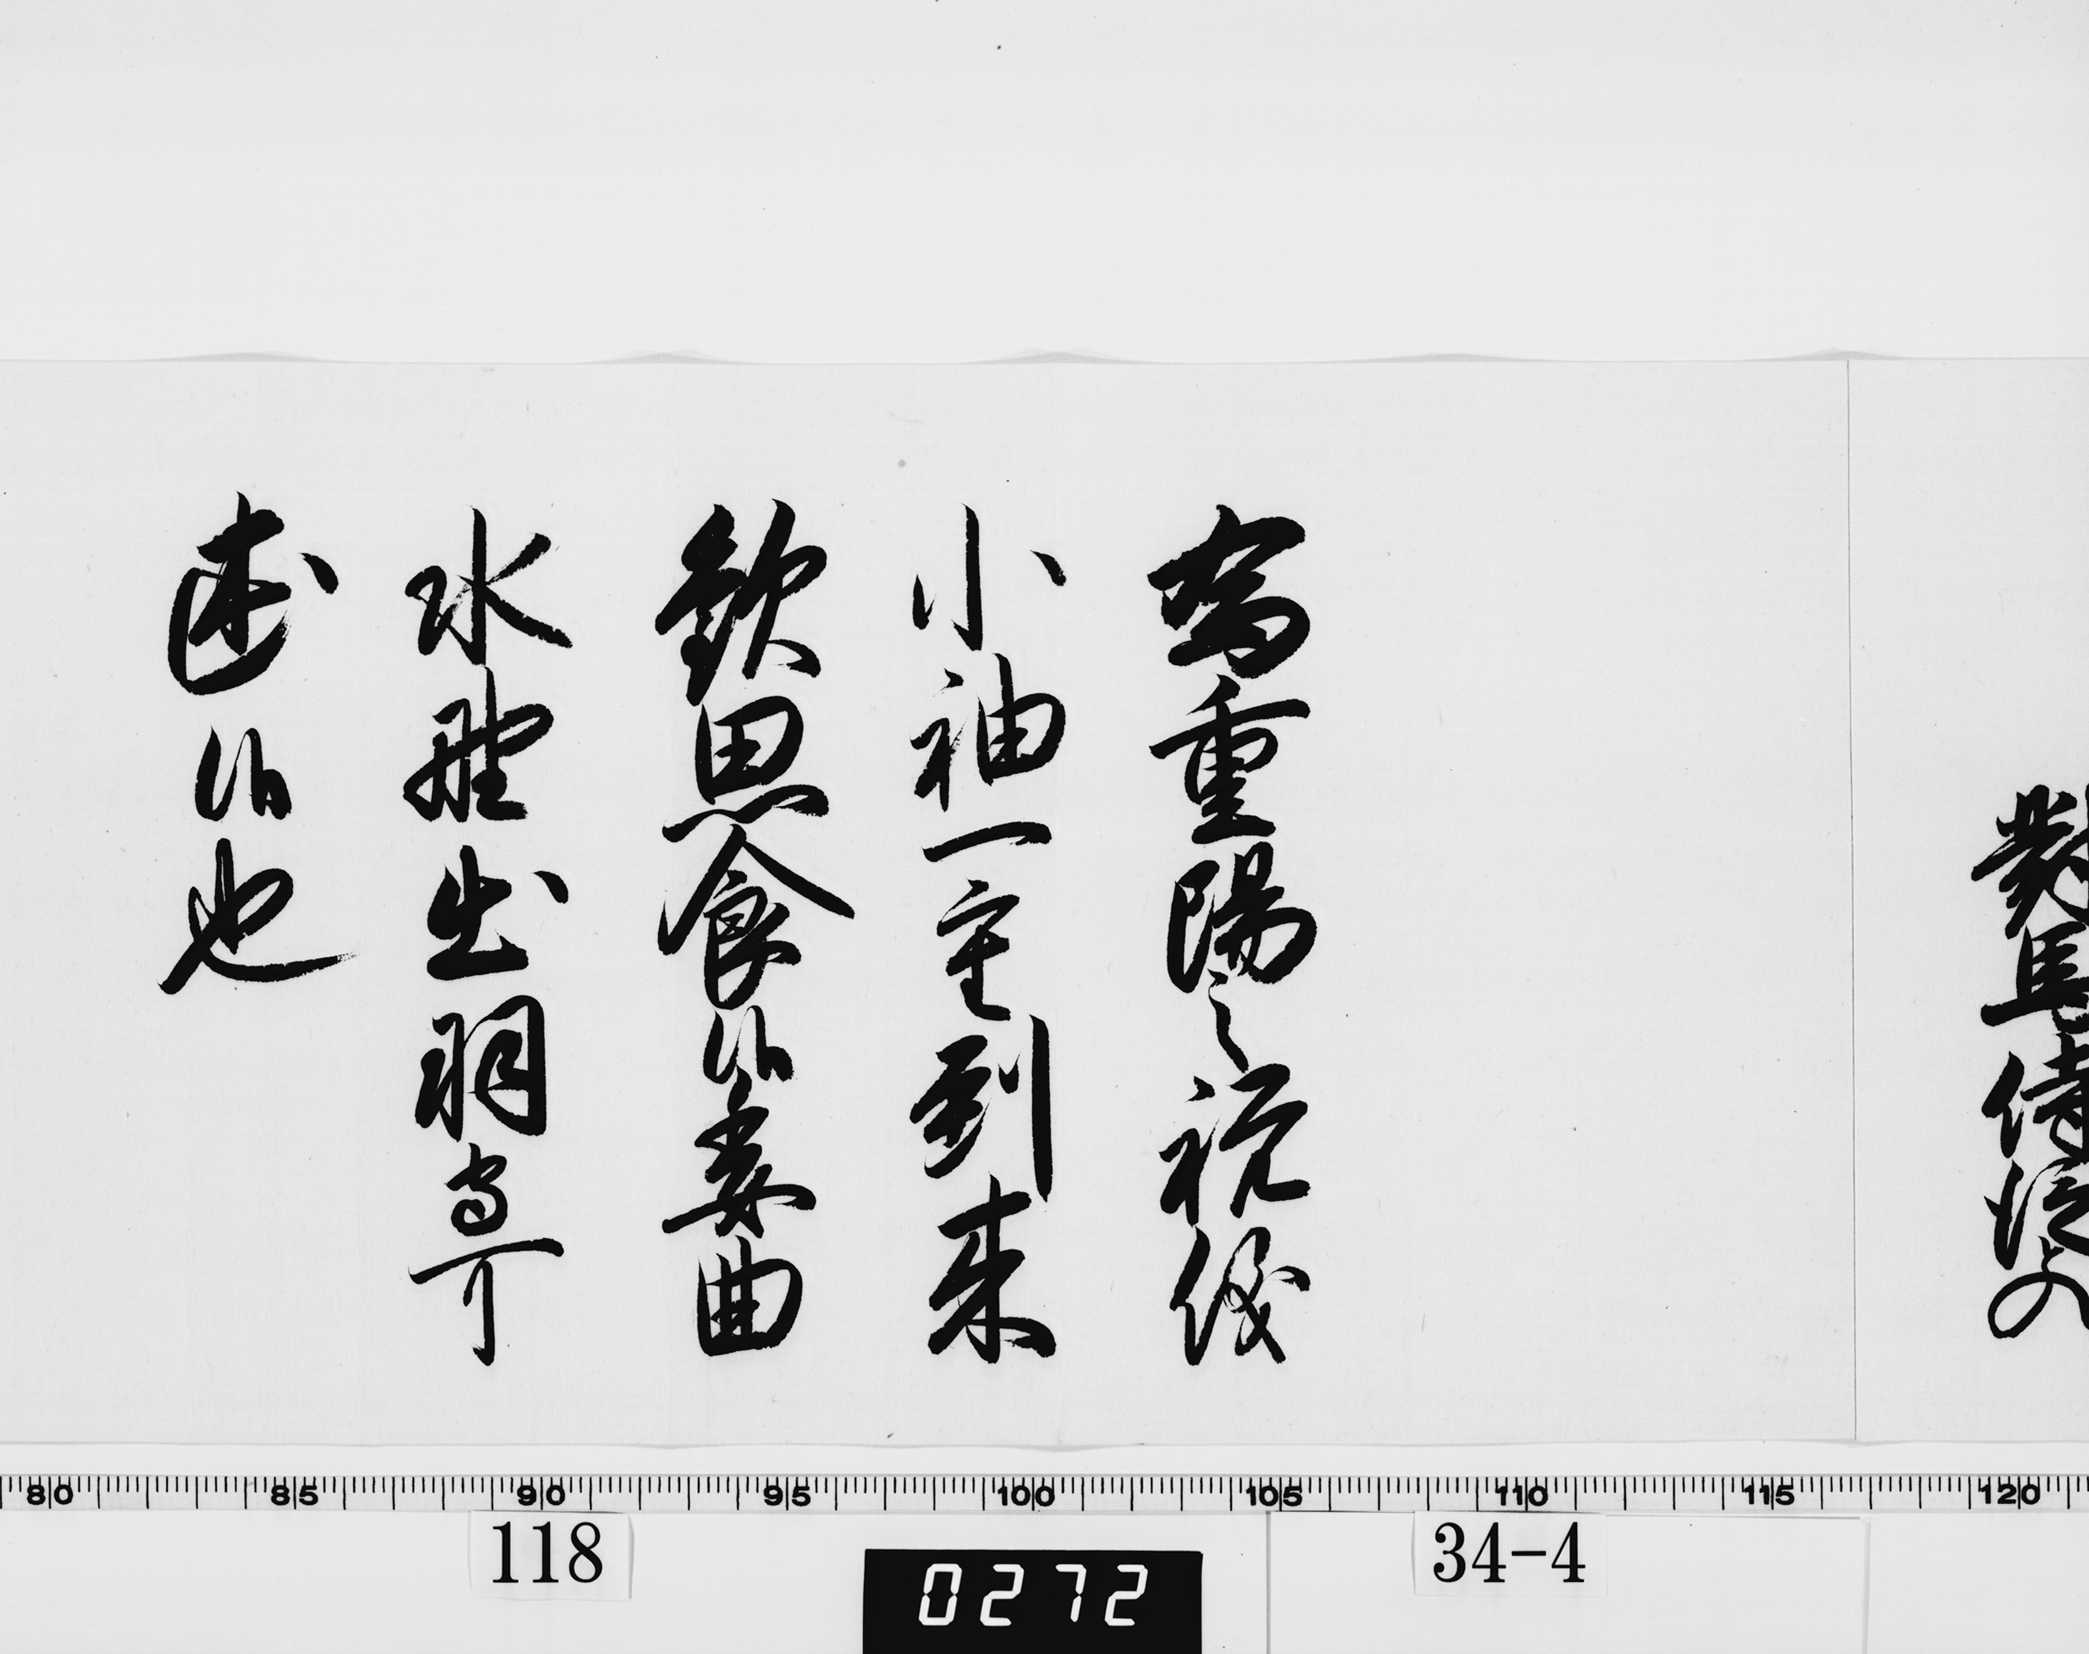 對馬侍従との
為重陽之祝儀
小袖一重到来
歓思食候委曲
水野出羽守可
述候也
80 85 90 95 100 105 110 115 120
118
0272
34-4